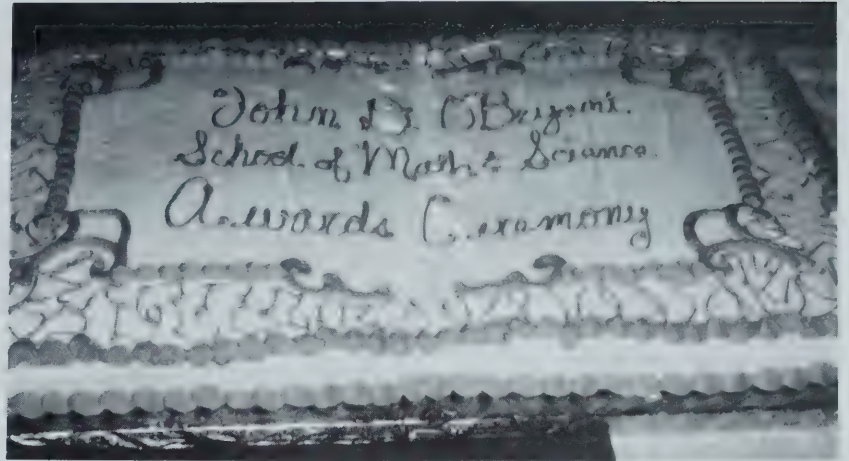 John D. O'Bryant
School of Math & Science
Awards Ceremony